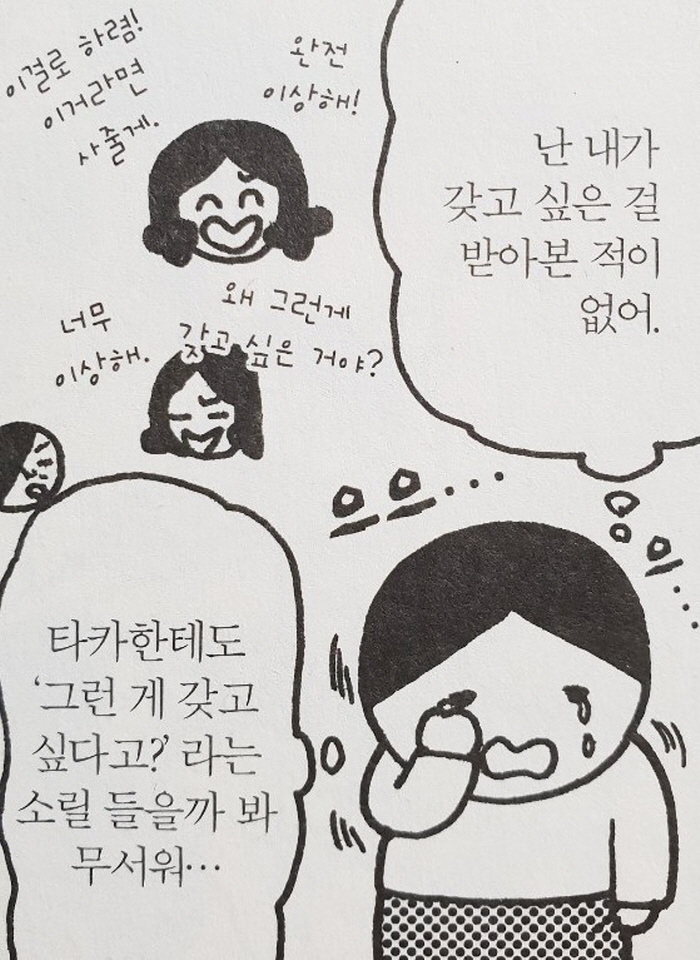 난 내가
갖고 싶은 걸
받아본 적이
없어.
완전
이상해!
이걸로 하렴!
이거라면
사줄게.
왜 그런게
갖고 싶은 거야?
너무
이상해.
으으...
엉 어...
타카한테도
‘그런 게 갖고
싶다고?’ 라는
소릴 들을까 봐
무서워…